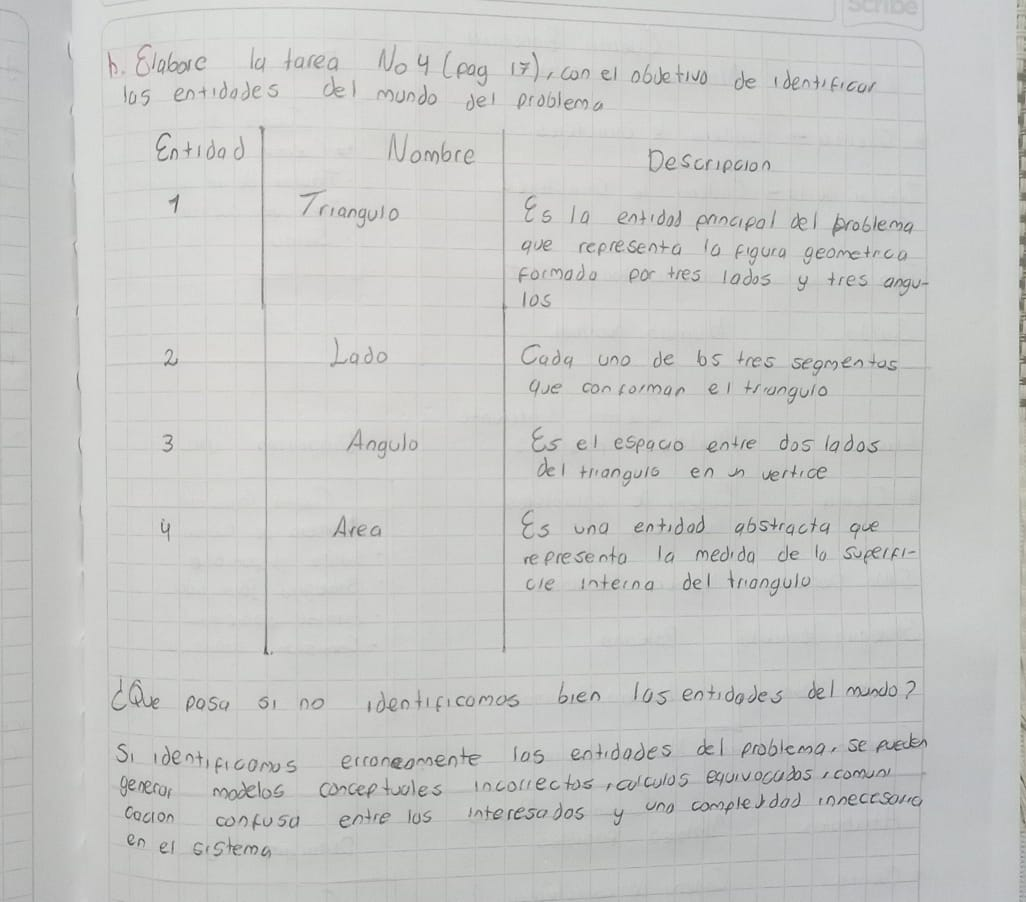 Scribe
h. Elabore la tarea No 4 (pag 17), con el objetivo de identificar
las entidades del mundo del problema
Entidad Nombre Descripcion
1 Triangulo Es la entidad principal del problema
que representa la figura geometrica
formada por tres lados y tres angu-
los
2 Lado Cada uno de los tres segmentos
que conforman el triangulo
3 Angulo Es el espacio entre dos lados
del triangulo en un vertice
4 Area Es una entidad abstracta que
representa la medida de la superfi-
cie interna del triangulo
¿Que pasa si no identificamos bien las entidades del mundo?
Si identificamos erroneamente las entidades del problema, se pueden
generar modelos conceptuales incorrectos, calculos equivocados, comuni
cacion confusa entre los interesados y una complejidad innecesaria
en el sistema